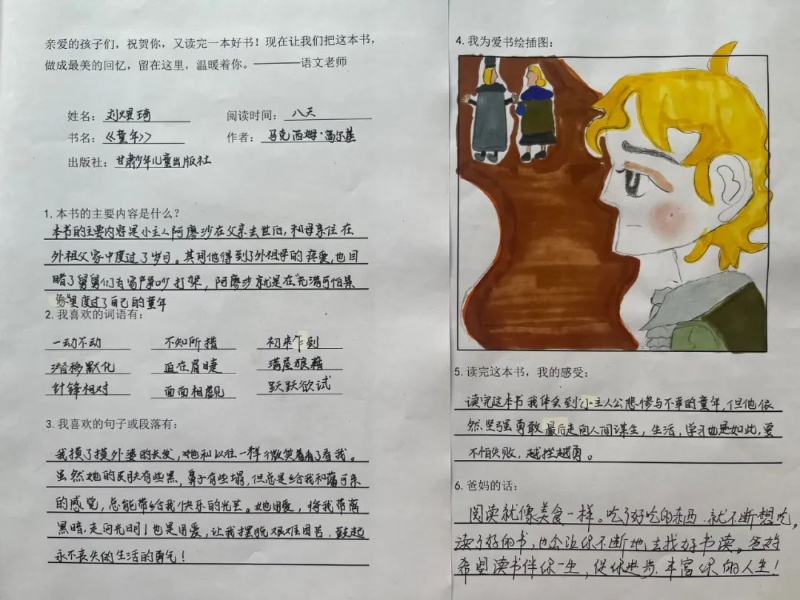 亲爱的孩子们，祝贺你，又读完一本好书！现在让我们把这本书，
做成最美的回忆，留在这里，温暖着你。————语文老师
姓名：刘煜琦 阅读时间：八天
书名：《童年》 作者：马克西姆·高尔基
出版社：甘肃少年儿童出版社
1. 本书的主要内容是什么？
本书的主要内容是小主人阿廖沙在父亲去世后，和母亲住在
外祖父家中度过了岁月。其间他得到了外祖母的疼爱，也目
睹了舅舅们为家产争吵打架，阿廖沙就是在充满可怕景
象里度过了自己的童年
2. 我喜欢的词语有：
一动不动 不知所措 初来乍到
潜移默化 迫在眉睫 满屋狼藉
针锋相对 面面相觑 跃跃欲试
3. 我喜欢的句子或段落有：
我摸了摸外婆的长发，她和以往一样微笑着看了看我。
虽然她的皮肤有些黑，鼻子有些塌，但总是给我和蔼可亲
的感觉，总能带给我快乐的光芒。她用爱，将我带离
黑暗，走向光明！也是用爱，让我摆脱艰难困苦，鼓起
永不丧失的生活的勇气！
4. 我为爱书绘插图：
5. 读完这本书，我的感受：
读完这本书我体会到小主人公悲惨与不幸的童年，但他依
然坚强勇敢最后走向人间谋生，生活，学习也是如此，要
不怕失败，越挫越勇。
6. 爸妈的话：
阅读就像美食一样。吃了好吃的东西，就不断想吃，
读了好的书，也会让你不断地去找好书读。爸妈
希望读书伴你一生，促你进步，丰富你的人生！